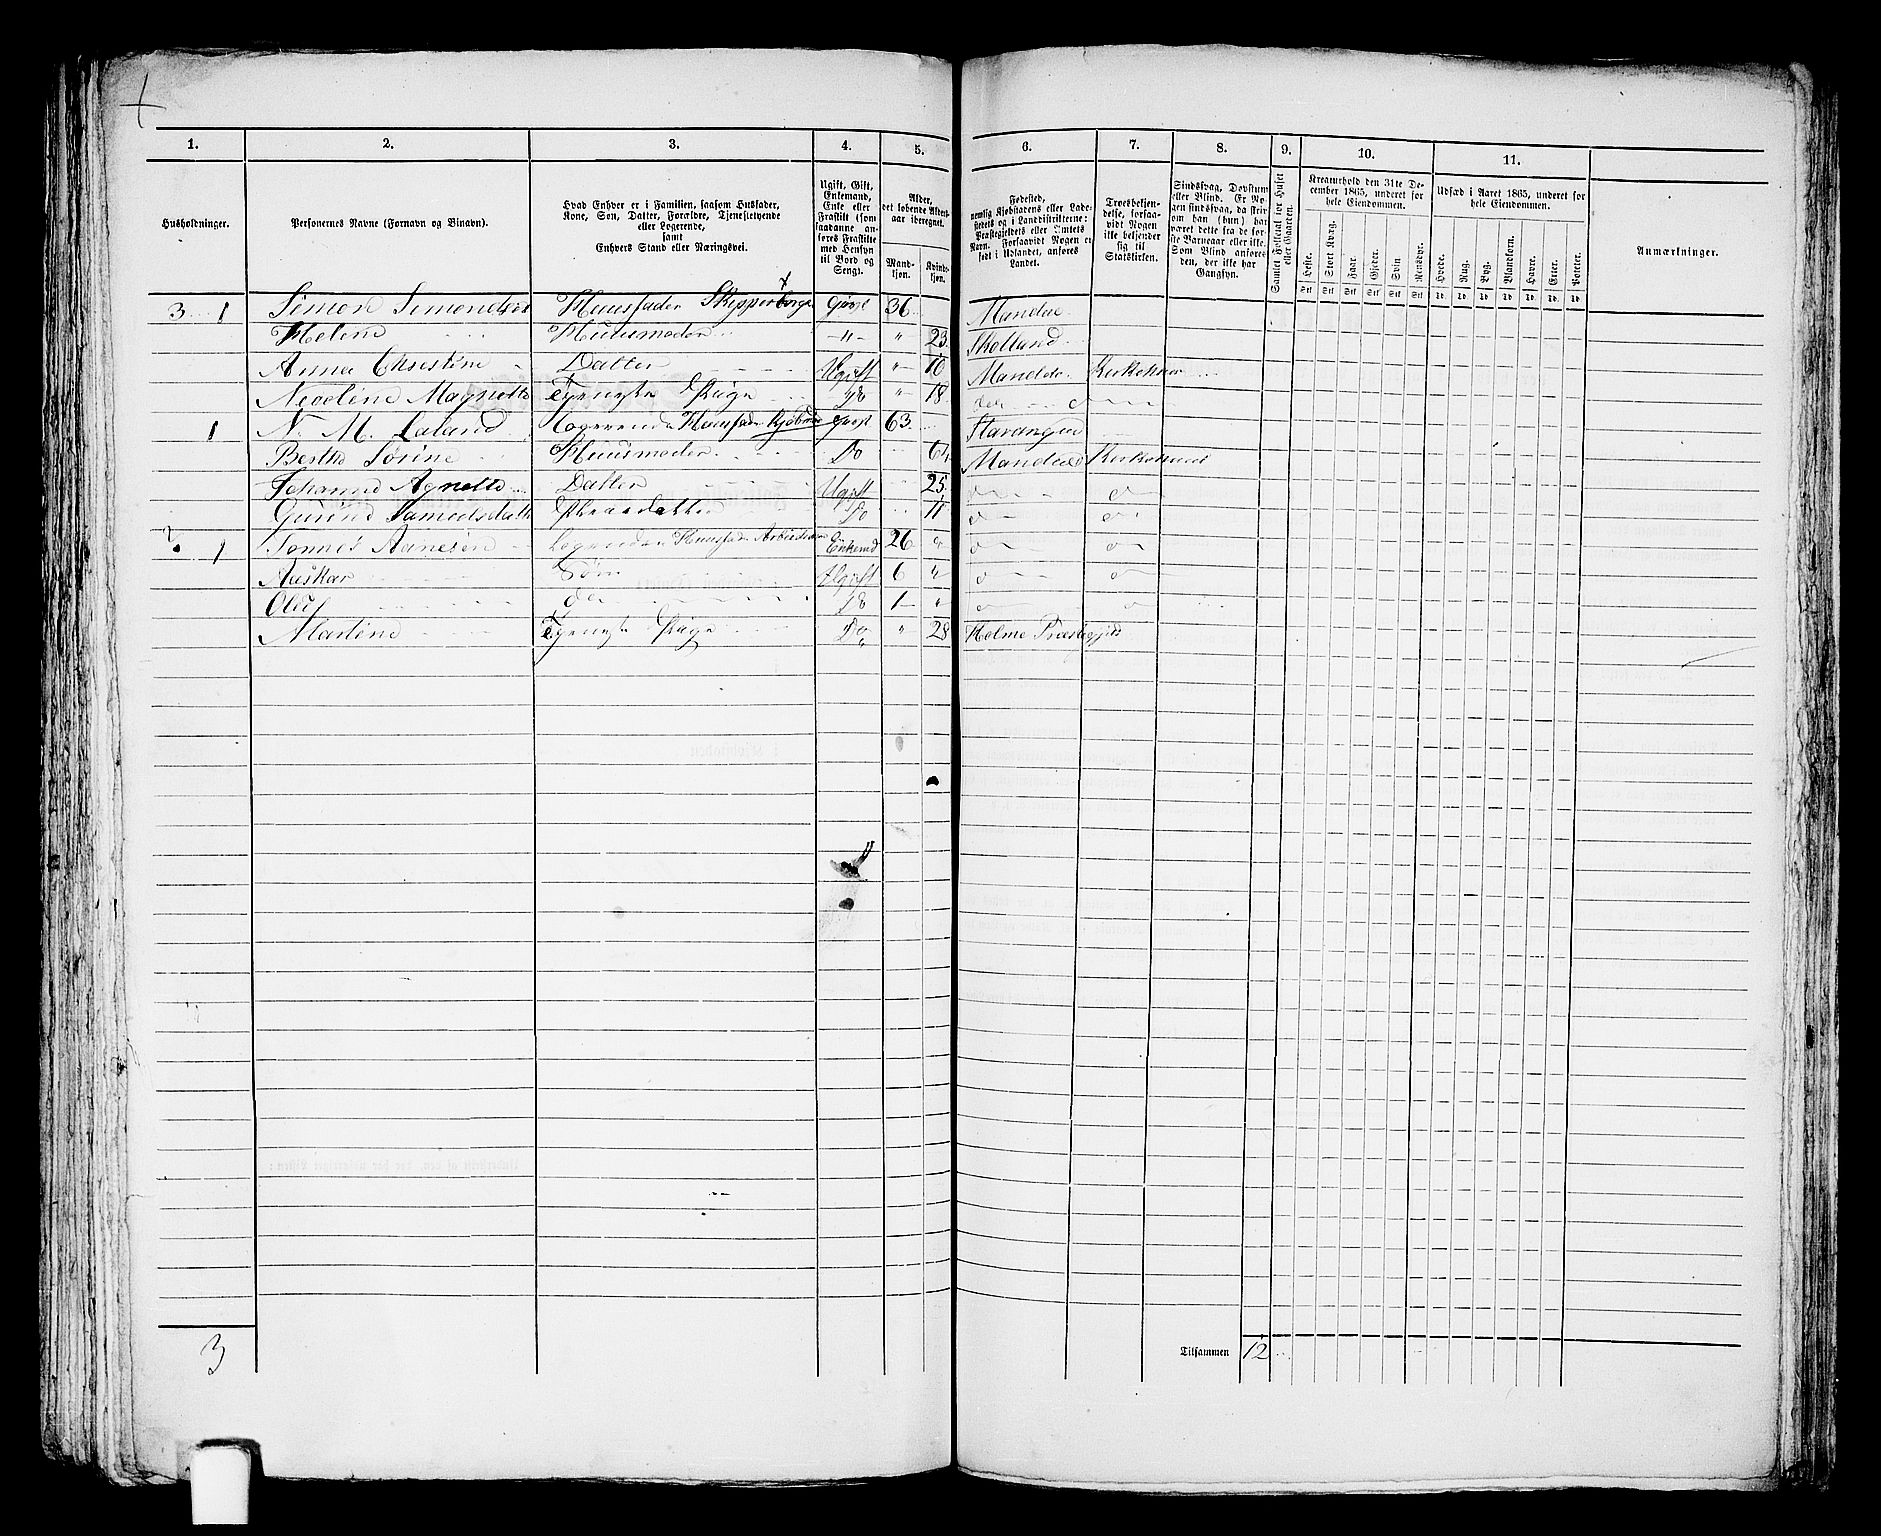 1. 2. 3. 4. 5. 6. 7. 8. 9. 10. 11.
Husholdninger.
Personernes Navne (Fornavn og Binavn).
Hvad Enhver er i Familien, saasom Husfader,
Kone, Søn, Datter, Forældre, Tjenestetyende
eller Logerende,
samt
Enhvers Stand eller Næringsvei.
Ugift, Gift,
Enkemand,
Enke eller
Fraskilt (som
saadanne an-
føres Fraskilte
med Hensyn
til Bord og
Seng).
Alder,
det løbende Alders-
aar iberegnet.
Mand-
kjøn.
Kvinde-
kjøn.
Fødested,
nemlig Kjøbstadens eller Lade-
stedets og i Landdistrikterne:
Præstegjeldets eller Amtets
Navn. Forsaavidt Nogen er
født i Udlandet, anføres
Landet.
Troesbekjen-
delse, forsaa-
vidt Nogen
ikke bekjender
sig til
Statskirken.
Sindssvag, Døvstum
eller Blind. Er No-
gen sindssvag, da skri-
ves om han (hun) har
været dette fra de før-
ste Barneaar eller ikke.
Som Blind anføres
den, der ikke har
Gangsyn.
Samlet Folketal for Huset
eller Gaarden.
Kreaturhold den 31te De-
cember 1865, underet for
hele Eiendommen.
Heste. Stort Kvæg. Faar. Gjeder. Svin Rensdyr.
Udsæd i Aaret 1865, underet for
hele Eiendommen.
Hvede. Rug. Byg. Blandkorn. Havre. Erter. Poteter.
Anmærkninger.
3 1 Simon Simondsen Huusfader Skipperborger Givt 36 Mandal
Helene Huusmoder -"- " 23 Skotland
Anna Christine Datter Ugift " 16 Mandal
Neoline Magnette Tjeneste Pige Do " 18 do
1 N. M. Laland Logerende Huusfader Givt 63 Stavanger
Berthe Sørine Huusmoder Do 64 Mandal
Johanne Agnette Datter Ugift 25
Gurine Samuelsdatter Do 11
1 Tønnes Aanesen Logerende Huusfader Arbeidsmand Enkemd 26 "
Auskar Søn Ugift 6 "
Oluf do Do 1 "
Martine Tjeneste Pige Do " 28 Holme Præstegjeld
3
Tilsammen 12